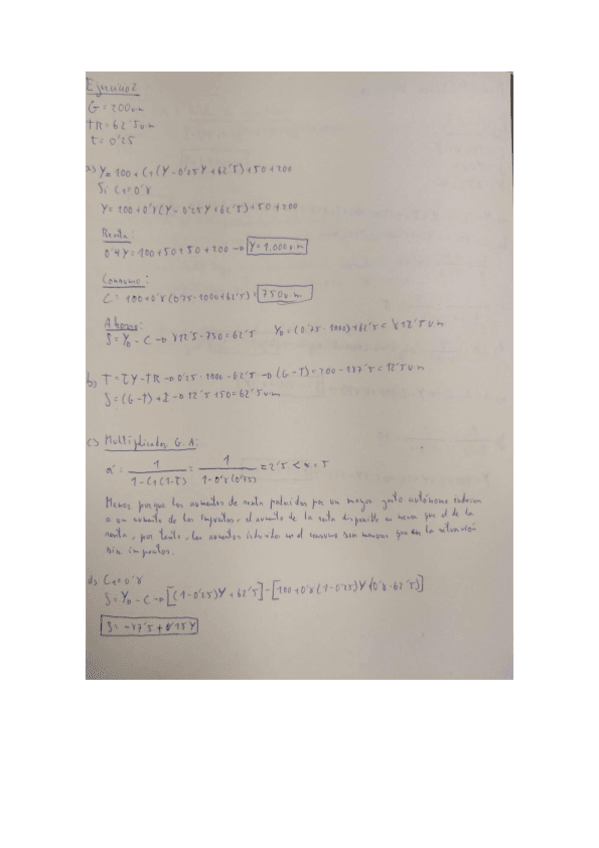 Ejercicio 2
G = 200 u.m
TR = 62'5 u.m
t = 0'25
a) Y = 100 + C1 (Y - 0'25Y + 62'5) + 50 + 200
Si C1 = 0'8
Y = 100 + 0'8 (Y - 0'25Y + 62'5) + 50 + 200
Renta:
0'4Y = 100 + 50 + 50 + 200 → Y = 1.000 u.m
Consumo:
C = 100 + 0'8 (0'75 · 1000 + 62'5) = 750 u.m
Ahorro:
S = YD - C → 812'5 - 750 = 62'5 YD = (0'75 · 1000) + 62'5 = 812'5 u.m
b) T = tY - TR → 0'25 · 1000 - 62'5 → (G - T) = 200 - 187'5 = 12'5 u.m
S = (G - T) + I → 12'5 + 50 = 62'5 u.m
c) Multiplicador G.A:
α' = 1 / (1 - C1 (1 - t)) = 1 / (1 - 0'8 (0'75)) = 2'5 < α = 5
Menor porque los aumentos de renta producidos por un mayor gasto autónomo inducen
a un aumento de los impuestos, el aumento de la renta disponible es menor que el de la
renta, por tanto, los aumentos inducidos en el consumo son menores que en la situación
sin impuestos.
d) C1 = 0'8
S = YD - C → [(1 - 0'25)Y + 62'5] - [100 + 0'8 (1 - 0'25)Y + (0'8 · 62'5)]
S = -87'5 + 0'15Y